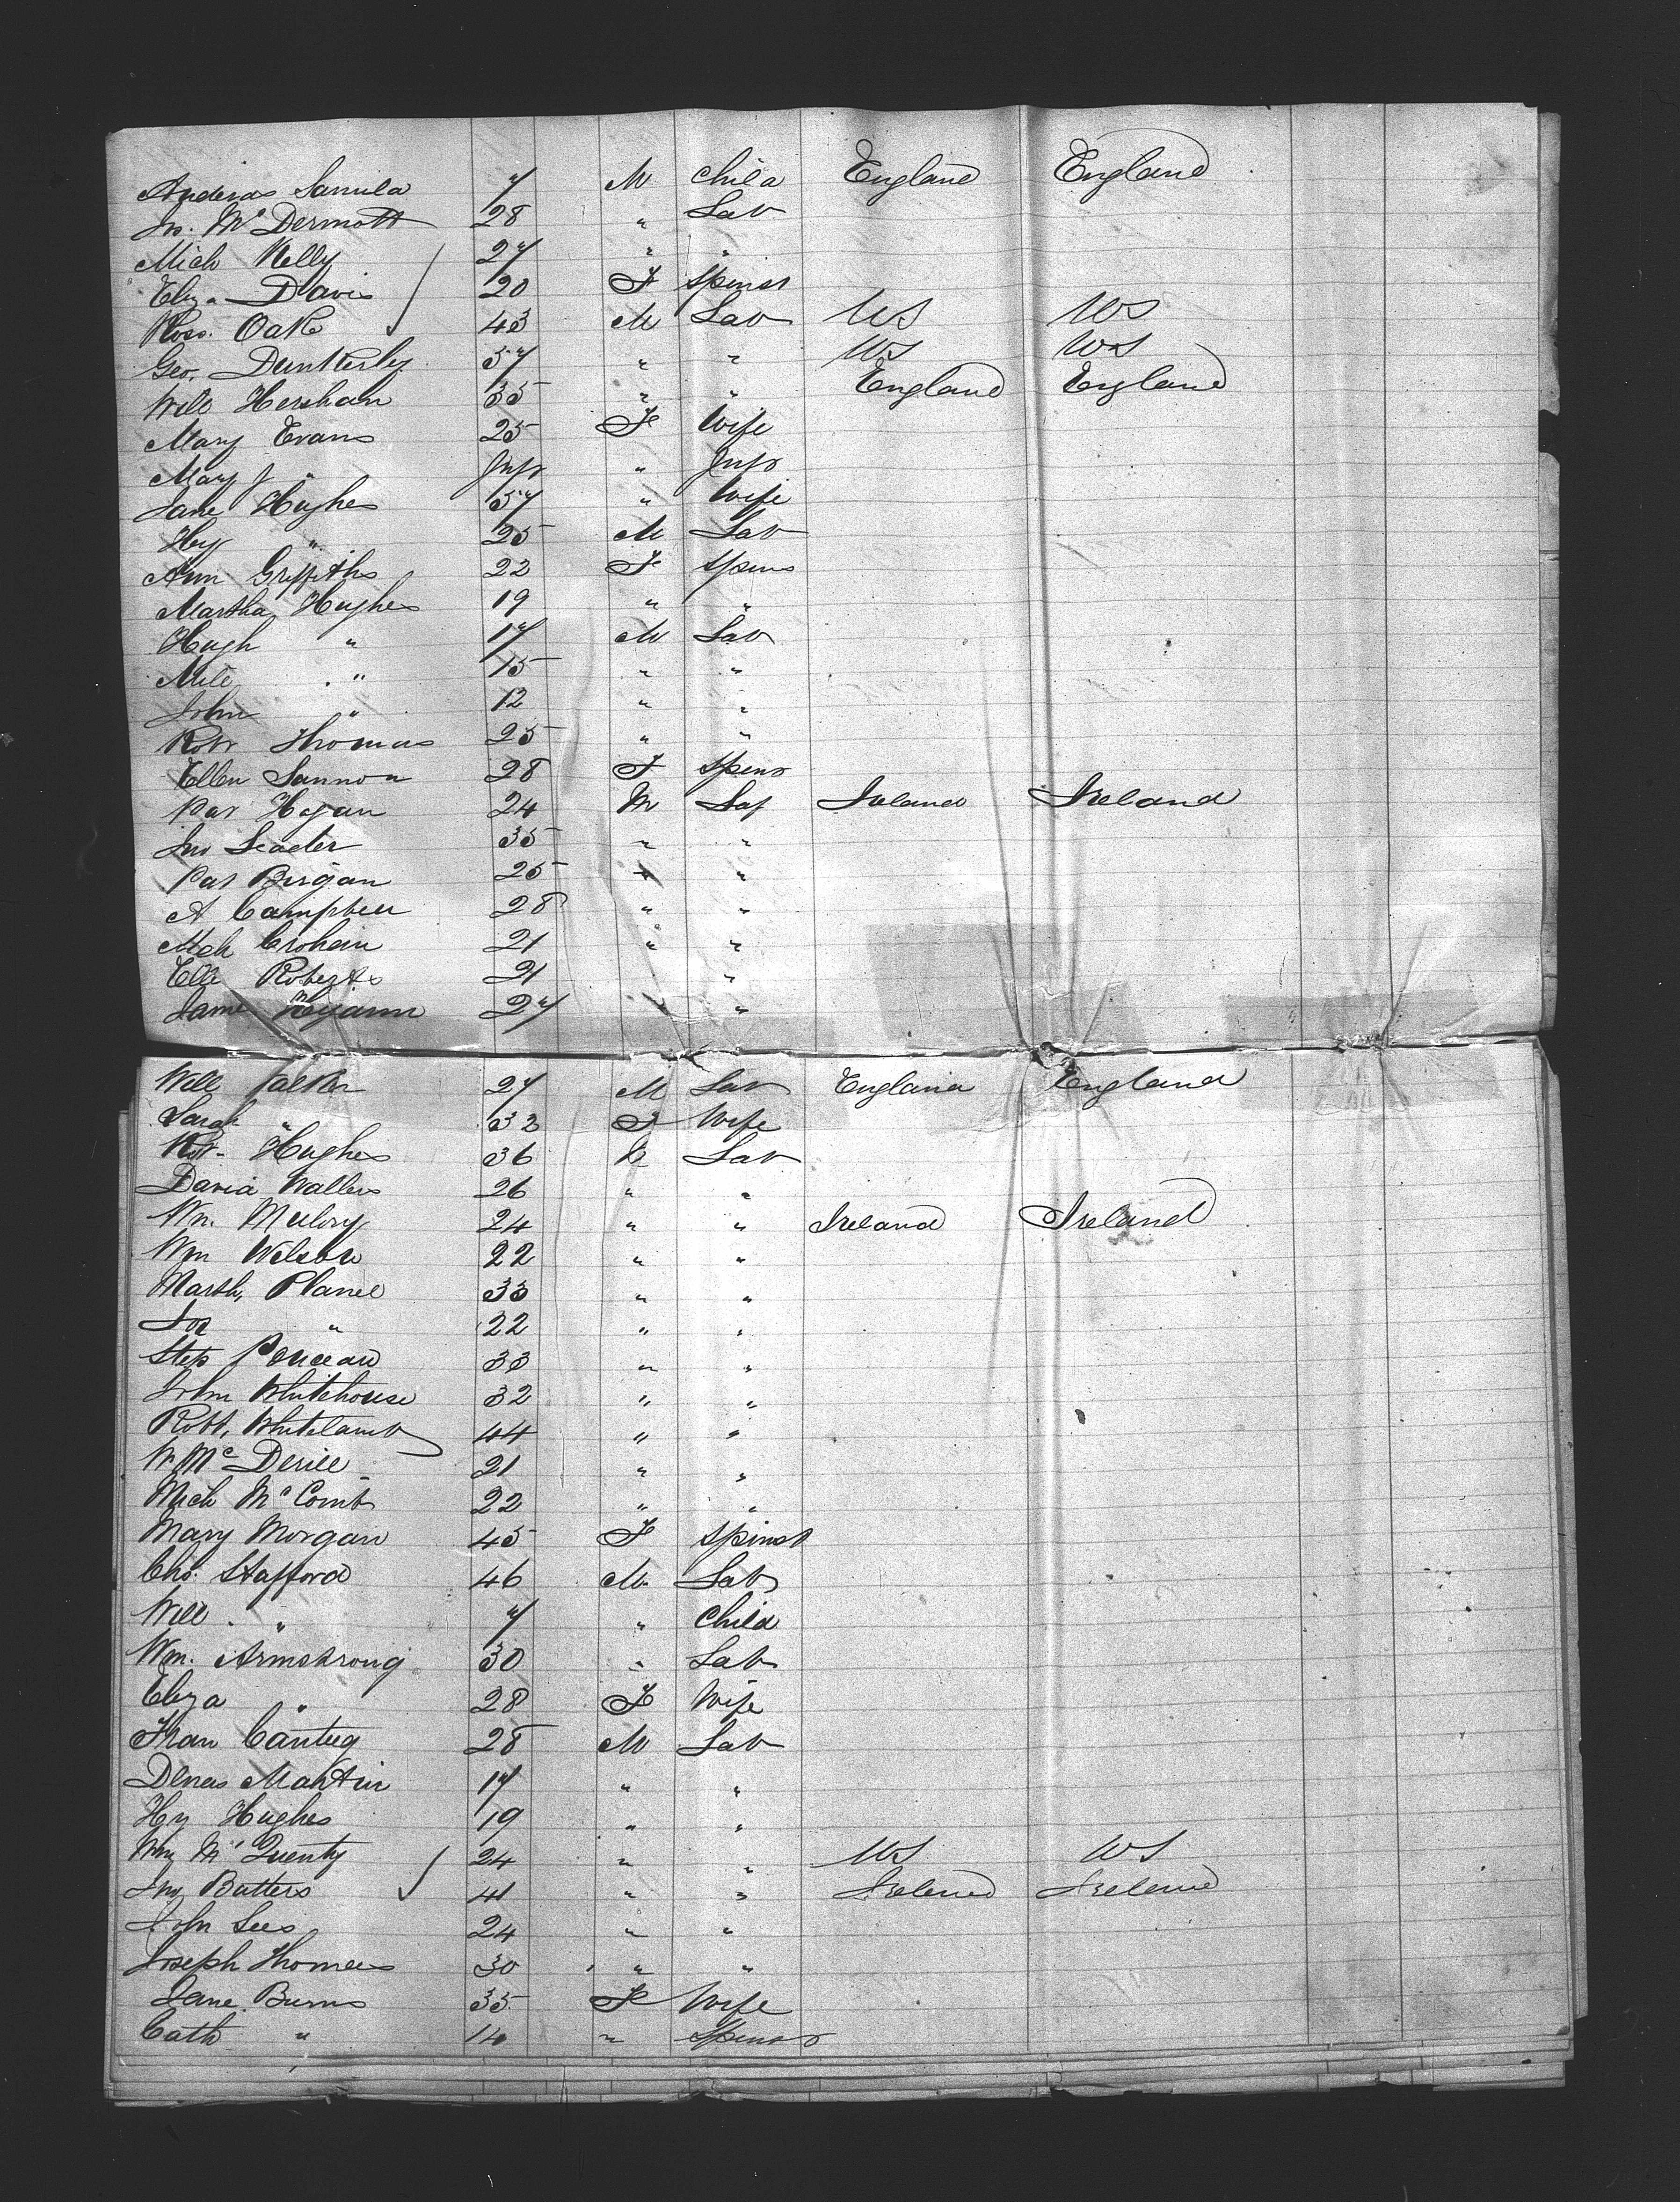 Samula 7 M Child England England
Jas. McDermott 28 " Lab
Mich Kelly 27 " "
Eliza Davis 20 F Spinst
Ross. Oake 43 M Lab US US
Geo. Dunkerley 57 " " US US
Will Hersham 35 " " England England
Mary Evans 25 F Wife
Mary J " Inft " Inft
Jane Hughes 57 " Wife
Hy " 25 M Lab
Ann Griffiths 22 F Spins
Martha Hughes 19 " "
Hugh " 17 M Lab
" 15 " "
John " 12 " "
Robt Thomas 25 " "
Ellen Lannon 28 F Spins
Pat Hogan 24 M Lab Ireland Ireland
Jno Leader 35 " "
Pat Bergan 25 " "
A Campbell 28 " "
Mch Crohan 21 " "
Elle Roberts 21 "
James 27 "
Will 27 M Lab England England
Sarah " 32 F Wife
Rob. Hughes 36 M Lab
David Wallers 26 " "
Wm. Mulory 24 " " Ireland Ireland
Wm Wilson 22 " "
Marsh, Planel 33 " "
Jos " 22 " "
Step 33 " "
John Whitehouse 32 " "
Robt. Whitelamb 44 " "
W McDeriee 21 " "
Mich McComb 22 " "
Mary Morgan 45 F Spinst
Chs. Stafford 46 M Lab
Will " 7 " Child
Wm. Armstrong 30 " Lab
Eliza " 28 F Wife
Fran 28 M Lab
Martin 17 " "
Hy Hughes 19 " "
Wm McQuenty 24 " " US US
Jno Butters 41 " " Ireland Ireland
John Lees 24 " "
Joseph Thomas 30 " "
Jane Burns 35 F Wife
Cath " 14 " Spinst